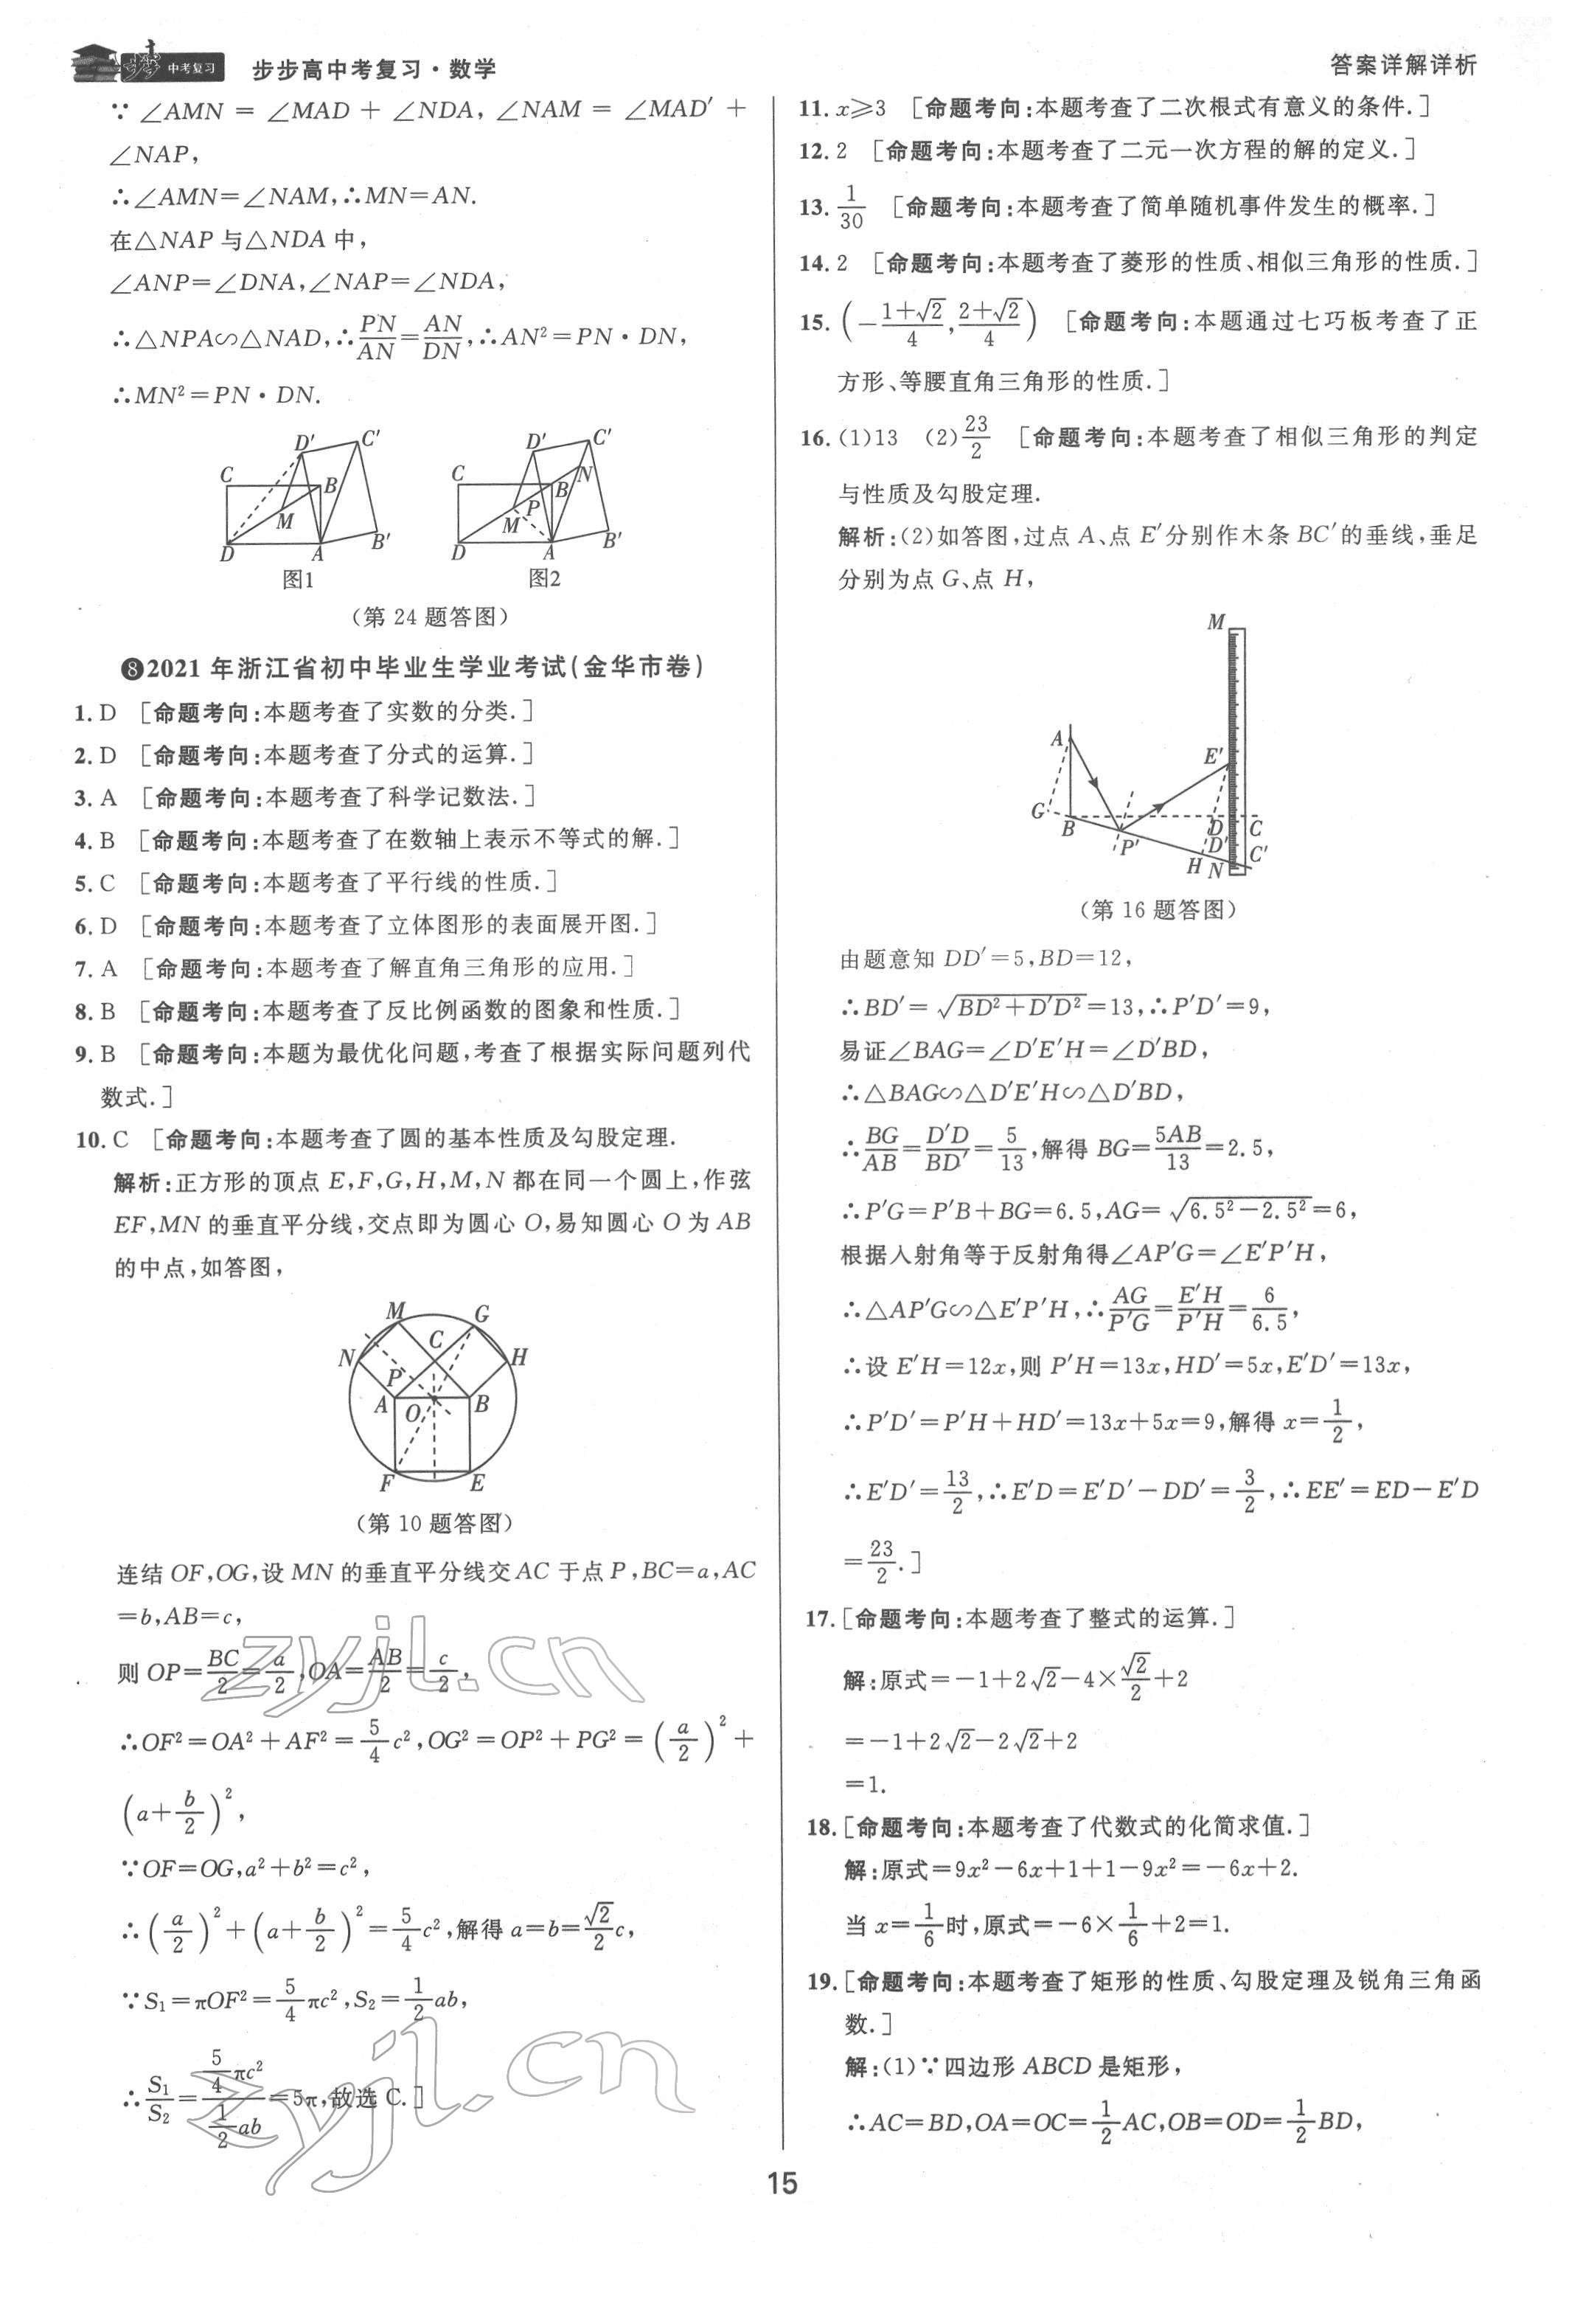 中考复习 步步高中考复习·数学
答案详解详析
∵∠AMN = ∠MAD + ∠NDA, ∠NAM = ∠MAD′ +
∠NAP,
∴∠AMN=∠NAM,∴MN=AN.
在△NAP与△NDA中,
∠ANP=∠DNA,∠NAP=∠NDA,
∴△NPA∽△NAD,∴PN/AN=AN/DN,∴AN²=PN·DN,
∴MN²=PN·DN.
D′ C′ C B M D A B′
图1
D′ C′ C N B P M D A B′
图2
(第 24 题答图)
❽2021 年浙江省初中毕业生学业考试(金华市卷)
1. D [命题考向:本题考查了实数的分类.]
2. D [命题考向:本题考查了分式的运算.]
3. A [命题考向:本题考查了科学记数法.]
4. B [命题考向:本题考查了在数轴上表示不等式的解.]
5. C [命题考向:本题考查了平行线的性质.]
6. D [命题考向:本题考查了立体图形的表面展开图.]
7. A [命题考向:本题考查了解直角三角形的应用.]
8. B [命题考向:本题考查了反比例函数的图象和性质.]
9. B [命题考向:本题为最优化问题,考查了根据实际问题列代
数式.]
10. C [命题考向:本题考查了圆的基本性质及勾股定理.
解析:正方形的顶点 E,F,G,H,M,N 都在同一个圆上,作弦
EF,MN 的垂直平分线,交点即为圆心 O,易知圆心 O 为 AB
的中点,如答图,
M G C N H P A O B F E
(第 10 题答图)
连结 OF,OG,设 MN 的垂直平分线交 AC 于点 P,BC=a,AC
=b,AB=c,
则 OP=BC/2=a/2,OA=AB/2=c/2,
∴OF²=OA²+AF²=5/4c²,OG²=OP²+PG²=(a/2)²+
(a+b/2)²,
∵OF=OG,a²+b²=c²,
∴(a/2)²+(a+b/2)²=5/4c²,解得 a=b=√2/2c,
∵S₁=πOF²=5/4πc²,S₂=1/2ab,
∴S₁/S₂=(5/4πc²)/(1/2ab)=5π,故选 C.]
zyjl.cn
zyjl.cn
11. x⩾3 [命题考向:本题考查了二次根式有意义的条件.]
12. 2 [命题考向:本题考查了二元一次方程的解的定义.]
13. 1/30 [命题考向:本题考查了简单随机事件发生的概率.]
14. 2 [命题考向:本题考查了菱形的性质、相似三角形的性质.]
15. (-(1+√2)/4,(2+√2)/4) [命题考向:本题通过七巧板考查了正
方形、等腰直角三角形的性质.]
16. (1)13 (2)23/2 [命题考向:本题考查了相似三角形的判定
与性质及勾股定理.
解析:(2)如答图,过点 A、点 E′分别作木条 BC′的垂线,垂足
分别为点 G、点 H,
M A E′ G B D C P′ D′ C′ H N
(第 16 题答图)
由题意知 DD′=5,BD=12,
∴BD′=√(BD²+D′D²)=13,∴P′D′=9,
易证∠BAG=∠D′E′H=∠D′BD,
∴△BAG∽△D′E′H∽△D′BD,
∴BG/AB=D′D/BD′=5/13,解得 BG=5AB/13=2.5,
∴P′G=P′B+BG=6.5,AG=√(6.5²-2.5²)=6,
根据入射角等于反射角得∠AP′G=∠E′P′H,
∴△AP′G∽△E′P′H,∴AG/P′G=E′H/P′H=6/6.5,
∴设 E′H=12x,则 P′H=13x,HD′=5x,E′D′=13x,
∴P′D′=P′H+HD′=13x+5x=9,解得 x=1/2,
∴E′D′=13/2,∴E′D=E′D′-DD′=3/2,∴EE′=ED-E′D
=23/2.]
17. [命题考向:本题考查了整式的运算.]
解:原式=-1+2√2-4×√2/2+2
=-1+2√2-2√2+2
=1.
18. [命题考向:本题考查了代数式的化简求值.]
解:原式=9x²-6x+1+1-9x²=-6x+2.
当 x=1/6时,原式=-6×1/6+2=1.
19. [命题考向:本题考查了矩形的性质、勾股定理及锐角三角函
数.]
解:(1)∵四边形 ABCD 是矩形,
∴AC=BD,OA=OC=1/2AC,OB=OD=1/2BD,
15